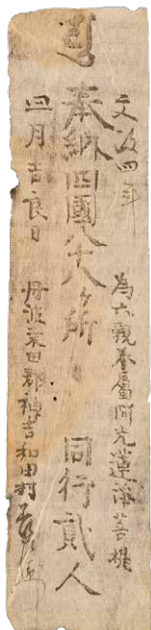 文政四年 為六親眷属 菩提
奉納四國八十八ヶ所 同行貳人
四月吉良日 丹波桑田郡神吉和田村